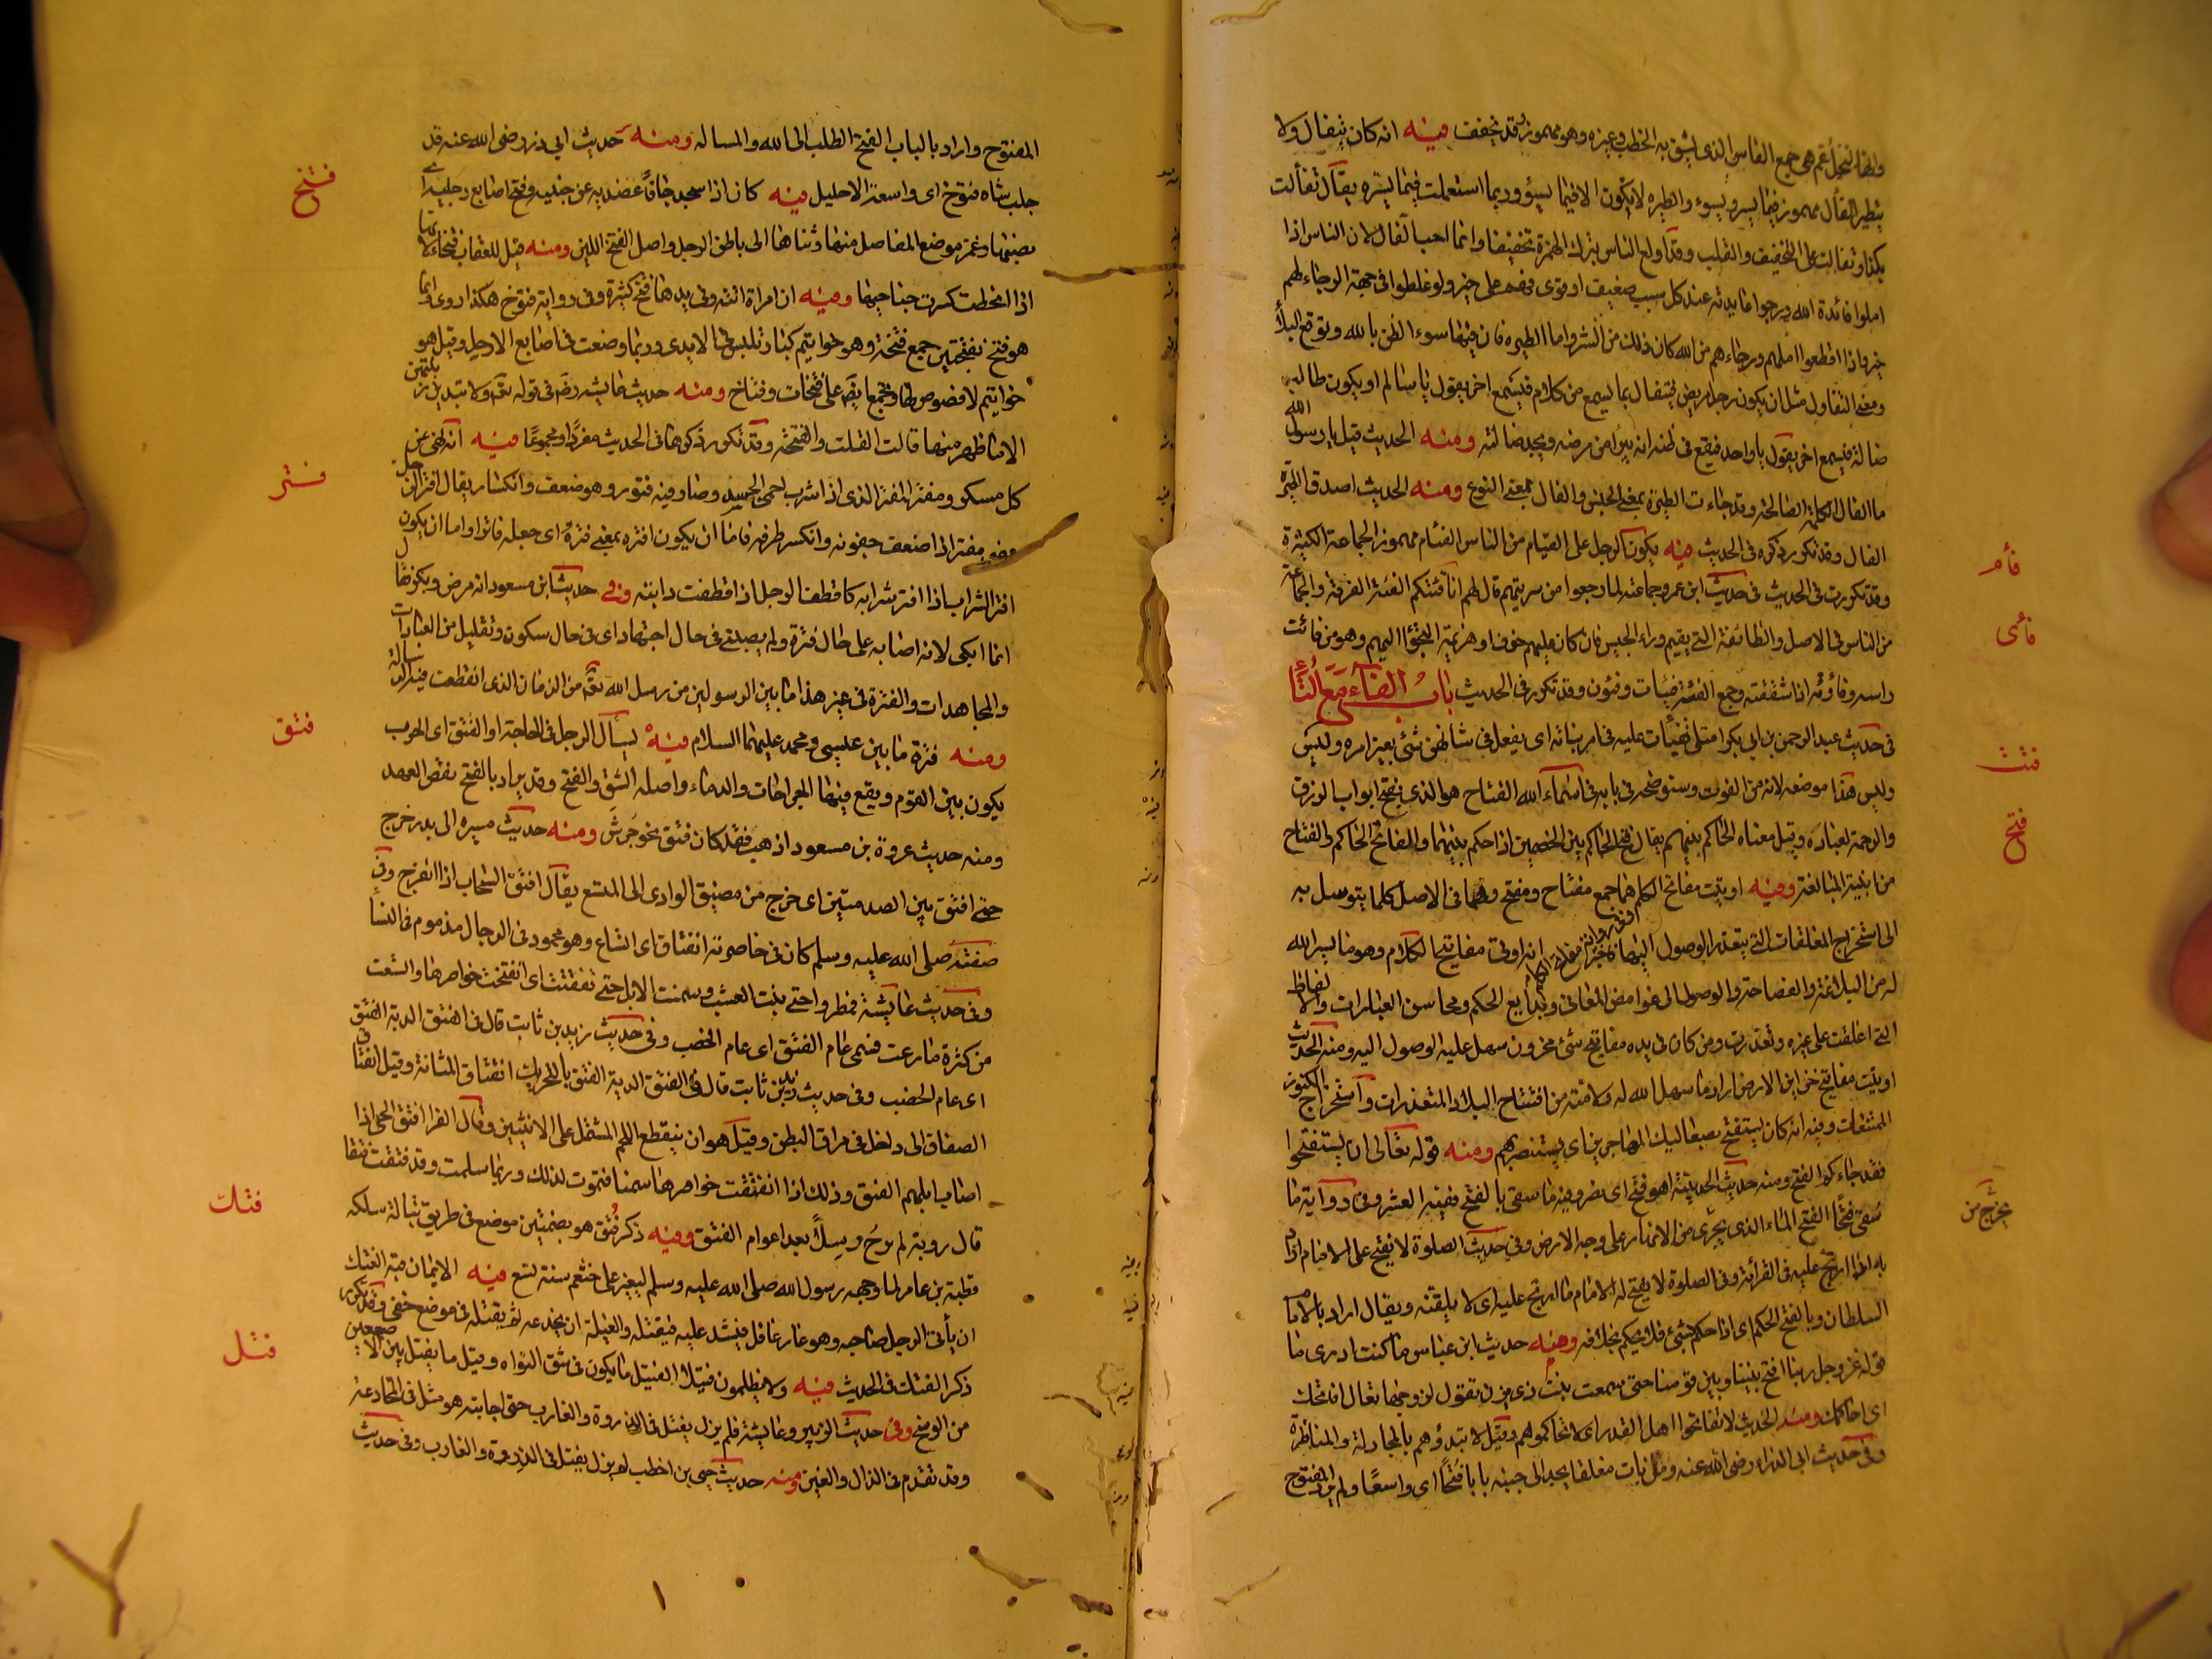 فيه انه كان يتفال ولا
يتطير الفأل مهموز فيما يسر ويسوء والطيره لا يكون الا فيما يسوء وربما استعملت فيما يسره يقال تفألت
بكذا وتفالت على التخفيف والقلب وقد اولع الناس بترك الهمزة تخفيفا وانما احب الفال لان الناس اذا
املوا فائدة الله ورجوا عايدته عند كل سبب ضعيف او قوى فهم على خير ولو غلطوا فى جهة الرجاء لهم
خير واذا قطعوا املهم ورجاءهم من الله كان ذلك من الشر واما الطيره فان فيها سوء الظن بالله وتوقع البلاء
ومعنى التفاول مثل ان يكون رجل مريض فيتفال بما يسمع من كلام فيسمع اخر يقول يا سالم او يكون طالب
ضالة فيسمع اخر يقول يا واجد فيقع فى ظنه انه يبرأ من مرضه ويجد ضالته ومنه الحديث قيل يا رسول الله
ما الفال الكلمة الصالحه وقد جاءت الطيرة بمعنى الجنس والفال بمعنى النوع ومنه الحديث اصدق الطيره
الفال وقد تكرر ذكره فى الحديث فيه يكون الرجل على الفيام من الناس الفئام مهموز الجماعة الكثيرة
وقد تكررت فى الحديث فى حديث ابن عمر وجماعته لما رجعوا من سريتهم قال لهم انا فئتكم الفئة الفرقة والجماعة
من الناس فى الاصل والطائفة التى يقيم وراء الجيش فان كان عليهم خوف او هزيمة التجؤا اليهم وهو من فائت
راسه وفأوته اذا شققته وجمع الفئة فئات وفئون وقد تكرر فى الحديث باب الفاء مع التاء
فى حديث عبد الرحمن بن ابى بكر امثلى يفتات عليه فى امر بناته اى يفعل فى شانهن شئ بغير امره وليس
وليس هذا موضعه لانه من الفوت وسنوضحه فى بابه فى اسماء الله الفتاح هو الذى يفتح ابواب الرزق
والرحمة لعباده وقيل معناه الحاكم بينهم يقال فتح الحاكم بين الخصمين اذا حكم بينهما والفاتح الحاكم والفتاح
من ابنية المبالغة وفيه اوتيت مفاتح الكلم هما جمع مفتاح ومفتح وهما فى الاصل كلما يتوسل به
الى استخراج المغلقات التى يتعذر الوصول اليها فاخبر انه اوتى مفاتيح الكلام وهو ما يسر الله
له من البلاغة والفصاحة والوصول الى غوامض المعانى وبدايع الحكم ومحاسن العبارات والالفاظ
التى اغلقت على غيره وتعذرت ومن كان فى يده مفاتيح شئ مخزون سهل عليه الوصول اليه ومنه الحديث
اوتيت مفاتيح خزاين الارض اراد ما سهل الله له ولامته من افتتاح البلاد المتعذرات واستخراج الكنوز
الممتنعات وفيه انه كان يستفتح بصعاليك المهاجرين اى يستنصر بهم ومنه قوله تعالى ان يستفتحوا
فقد جاءكم الفتح ومنه حديث الحديبية اهو فتح اى نصر وفيه ما سقى بالفتح ففيه العشر وفى رواية ما
سقى فتحا الفتح الماء الذى يجرى من الانهار على وجه الارض وفى حديث الصلوة لا يفتح على الامام اراد
به اذا ارتج عليه فى القراءة وفى الصلوة لا يفتح له الامام ما ارتج عليه اى لا يلقنه ويقال اراد بالامام
السلطان وبالفتح الحكم اى اذا حكم بشئ فلا يحكم بخلافه ومنه حديث ابن عباس ما كنت ادرى ما
قوله عز وجل ربنا افتح بيننا وبين قومنا حتى سمعت بنت ذى يزن تقول لزوجها تعال افاتحك
اى احاكمك ومنه الحديث لا تفاتحوا اهل القدر اى لا تحاكموهم وقيل لا تبدؤهم بالمجادلة والمناظرة
وفى حديث ابى الدرداء رضى الله عنه ومن يات مغلقا يجد الى جنبه بابا فتحا اى واسعا ولم يرد المفتوح
فأم
فأى
فتت
فتح
المفتوح واراد بالباب الفتح الطلب الى الله والمساله ومنه حديث ابى ذر رضى الله عنه قد
جلب شاه فتوح اى واسعة الاحليل فيه كان اذا سجد جافا عضديه عن جنبيه وفتح اصابع رجليه اى
نصبها وغمز موضع المفاصل منها وثناها الى باطن الرجل واصل الفتخ اللين ومنه قيل للعقاب فتخاء لانها
اذا انحطت كسرت جناحيها وفيه ان امراة اتته وفى يدها فتخ كثيرة وفى رواية فتوخ هكذا روى وانما
هو فتخ بفتحتين جمع فتخة وهو خواتيم كبار تلبس فى الايدى وربما وضعت فى اصابع الارجل وقيل هو
خواتيم لا فصوص لها وتجمع ايضا على فتخات وفتاخ ومنه حديث عايشه رضى فى قوله تعالى ولا يبدين زينتهن
الا ما ظهر منها قالت القلب والفتخه وقد تكرر ذكرها فى الحديث مفردا ومجموعا فيه انه نهى عن
كل مسكر ومفتر المفتر الذى اذا شرب احمى الجسد وصار فيه فتور وهو ضعف وانكسار يقال افتر الرجل
فهو مفتر اذا ضعفت جفونه وانكسر طرفه فاما ان يكون افتره بمعنى فتره اى جعله فاترا واما ان يكون
افتر الشراب اذا افتر شرابه كاقطف الرجل اذا قطفت دابته وفى حديث ابن مسعود انه مرض وبكى فقال
انما ابكى لانه اصابه على حال فترة ولم يصبنى فى حال اجتهاد اى فى حال سكون وتقليل من العبادات
والمجاهدات والفترة فى غير هذا ما بين الرسولين من رسل الله تعالى من الزمان الذى انقطعت فيه الرسالة
ومنه فترة ما بين عيسى ومحمد عليهما السلام فيه يسأل الرجل فى الحاجة او الفتق اى الحرب
يكون بين القوم ويقع فيها الجراحات والدماء واصله الشق والفتح وقد يراد بالفتح نقض العهد
ومنه حديث عروة بن مسعود اذهب فقد كان فتق نحو جرش ومنه حديث مسيره الى بدر خرج
حتى افتق بين الصدمتين اى خرج من مضيق الوادى الى المتسع يقال افتق السحاب اذا انفرج وفى
صفته صلى الله عليه وسلم كان فى خاصرته انفتاق اى اتساع وهو محمود فى الرجال مذموم فى النساء
وفى حديث عايشة فمطروا حتى نبت العشب وسمنت الابل حتى تفتقت اى انتفخت خواصرها واتسعت
من كثرة ما رعت فسمى عام الفتق اى عام الخصب وفى حديث زيد بن ثابت قال فى الفتق الدية الفتق
اى عام الخصب وفى حديث زيد بن ثابت قال فى الفتق الدية الفتق بالتحريك انفتاق المثانة وقيل انفتاق
الصفاق الى داخل فى مراق البطن وقيل هو ان ينقطع اللحم المشتمل على الانثيين وقال الفرا افتق الحى اذا
اصاب ابلهم الفتق وذلك اذا انفتقت خواصرها سمنا فتموت لذلك وربما سلمت وقد فتقت فتقا
قال روبة لم ترج رسلا بعد اعوام الفتق وفيه ذكر فتق هو بضمتين موضع فى طريق تبالة سلكه
قطبة بن عامر لما وجهه رسول الله صلى الله عليه وسلم ليغير على خثعم سنة تسع فيه الايمان قيد الفتك
ان يأتى الرجل صاحبه وهو غار غافل فيشد عليه فيقتله والغيلة ان يخدعه ثم يقتله فى موضع خفى وقد تكرر
ذكر الفتك فى الحديث فيه ولا يظلمون فتيلا الفتيل ما يكون فى شق النواه وقيل ما يفتل بين الاصبعين
من الوسخ وفى حديث الزبير وعايشة فلم يزل يفتل فى الذروة والغارب حتى اجابته هو مثل فى المخادعة
وقد تقدم فى الذال والغين ومنه حديث حيى بن اخطب لم يزل يفتل فى الذروة والغارب وفى حديث
فتخ
فتر
فتق
فتك
فتل